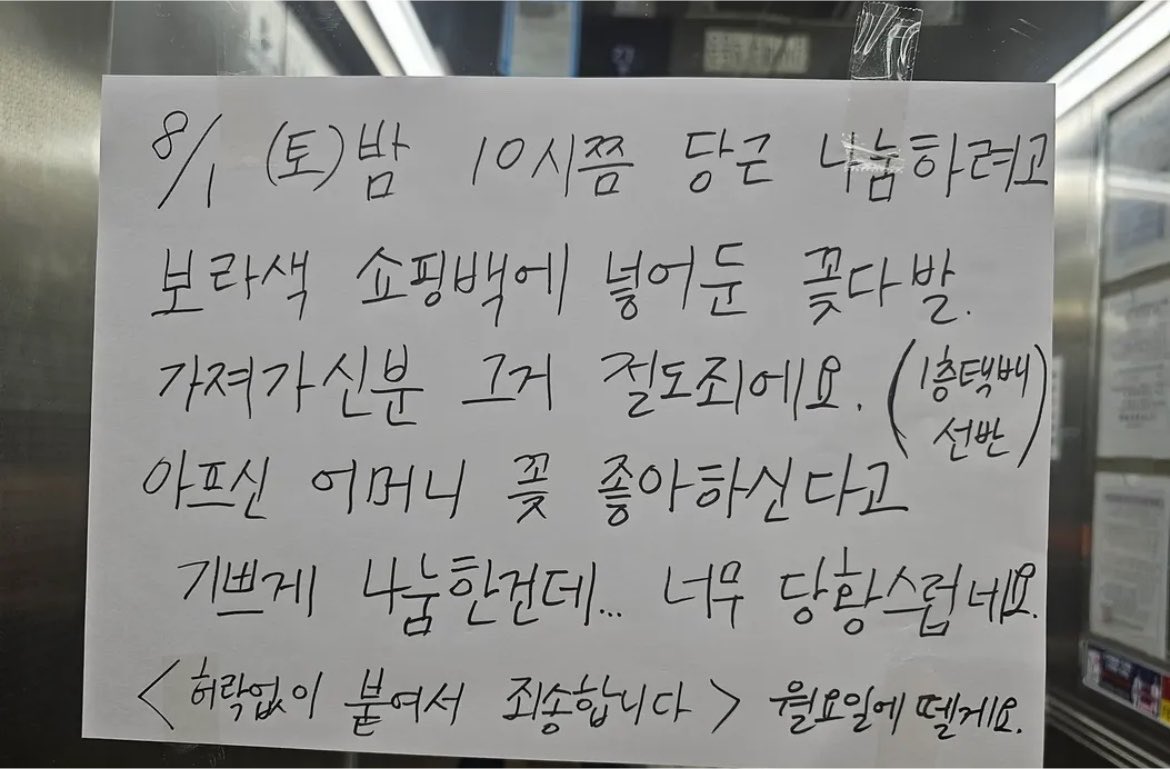 8/1 (토)밤 10시쯤 당근 나눔하려고
보라색 쇼핑백에 넣어둔 꽃다발.
가져가신분 그거 절도죄에요. (1층택배
선반)
아프신 어머니 꽃 좋아하신다고
기쁘게 나눔한건데... 너무 당황스럽네요.
<허락없이 붙여서 죄송합니다> 월요일에 뗄게요.